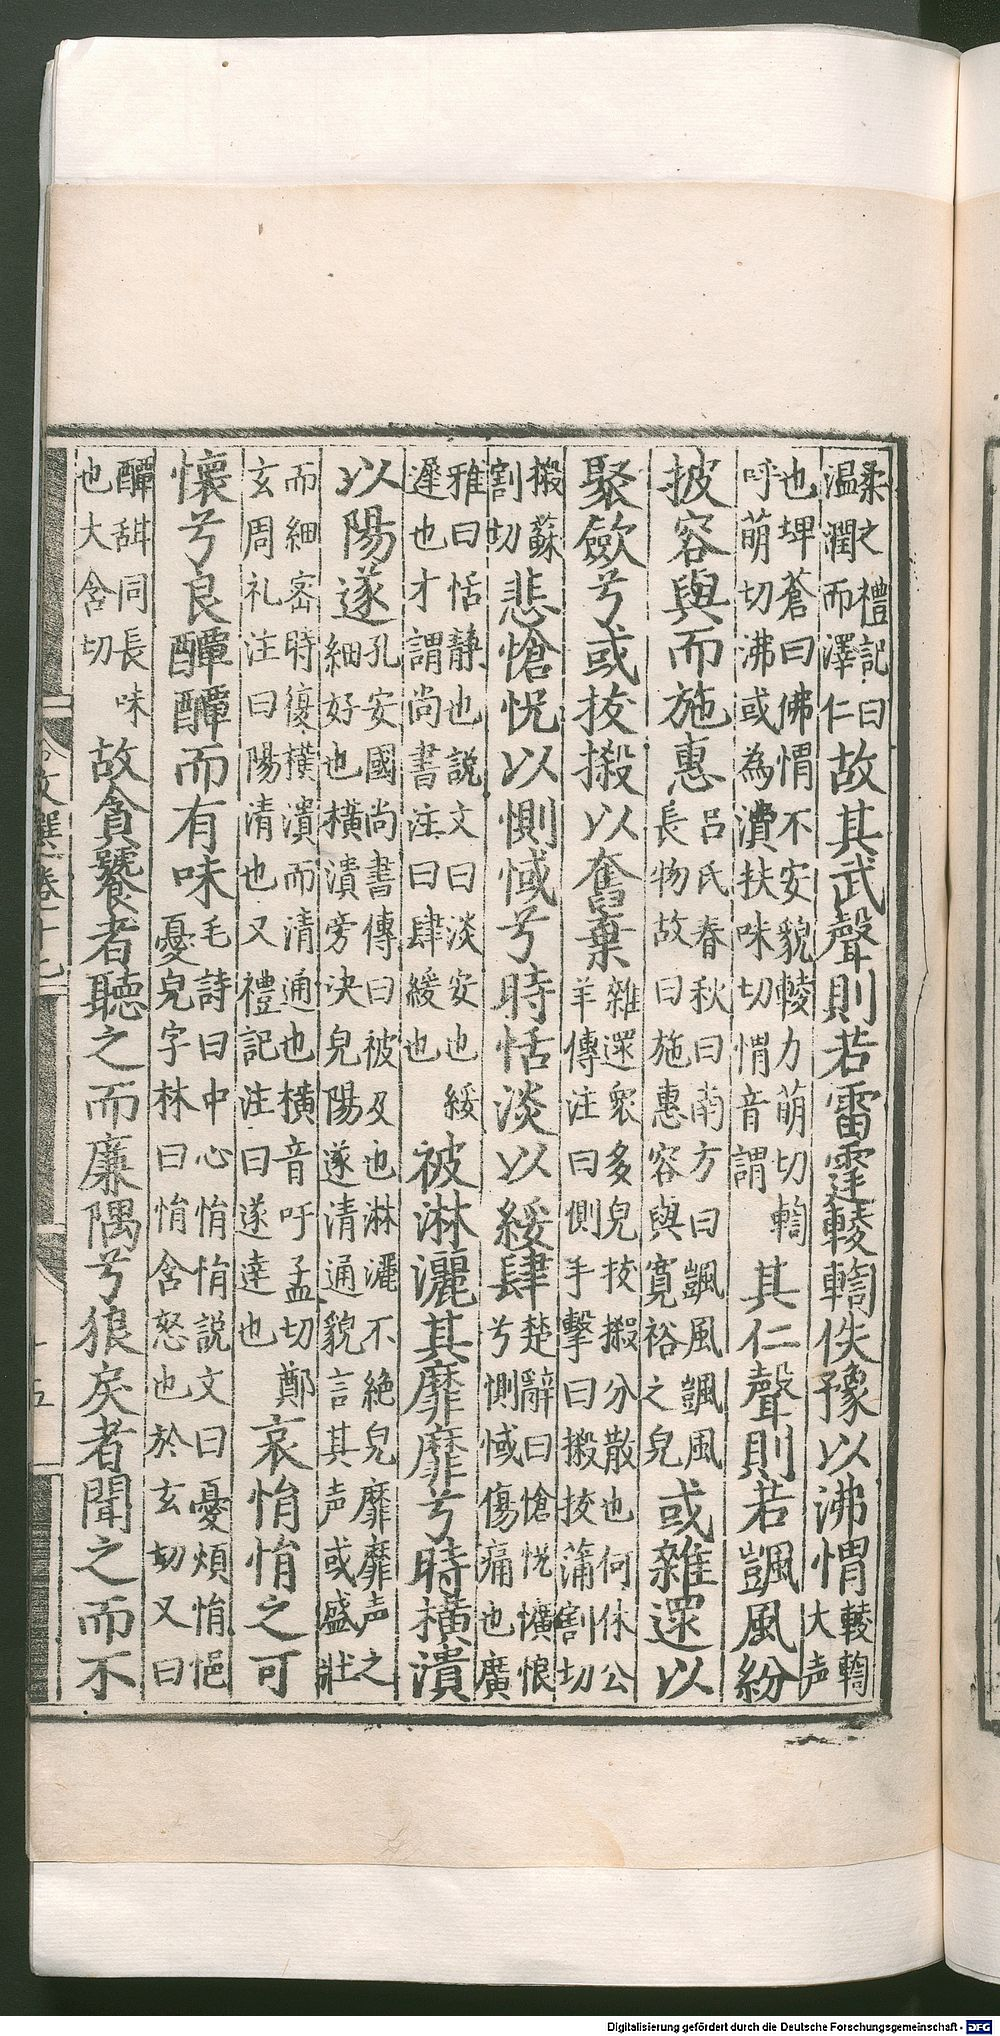 柔之禮記曰温潤而澤仁故其武聲則若雷霆輘輷佚豫以沸㥜輘輷大声
也埤蒼曰佛㥜不安貌輘力萌切輷呼萌切沸或為潰扶味切㥜音謂其仁聲則若颽風紛
披容與而施惠呂氏春秋曰南方曰颽風颽風長物故曰施惠容與寬裕之皃或雜遝以
聚歛兮或拔摋以奮棄雜遝衆多皃拔摋分散也何休公羊傳注曰側手擊曰摋拔蒲割切
摋蘇割切悲愴怳以惻惐兮時恬淡以綏肆楚辭曰愴怳懭悢兮惻惐傷痛也廣
雅曰恬静也説文曰淡安也綏遲也才謂尚書注曰肆緩也被淋灑其靡靡兮時横潰
以陽遂孔安國尚書傳曰被及也淋灑不絶皃靡靡声之細好也横潰旁决皃陽遂清通貌言其声或盛壯
而細密時復横潰而清通也横音吁孟切鄭玄周礼注曰陽清也又禮記注曰遂達也哀悁悁之可
懷兮良醰醰而有味毛詩曰中心悁悁説文曰憂煩悁悒憂皃字林曰悁含怒也於玄切又曰
醰甜同長味也大含切故貪饕者聽之而廉隅兮狼戾者聞之而不
文選卷十七
十五
Digitalisierung gefördert durch die Deutsche Forschungsgemeinschaft - DFG